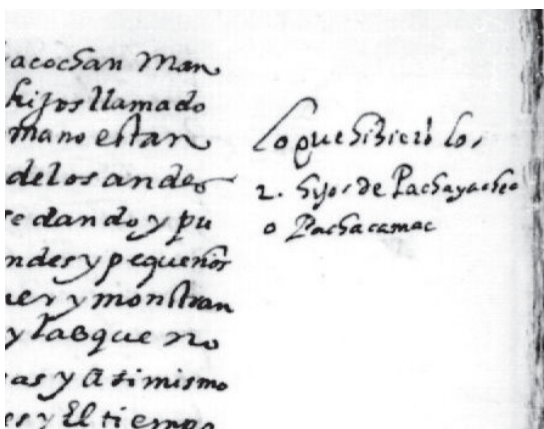 acochan Man
hijos llamado
mano estan
de los andes
se dando y pu
ndes y pequeños
uer y monstran
y las que no
as y a si mismo
es y El tiempo
Lo que hiziero los
2. hijos de Pachayachac
o Pachacamac